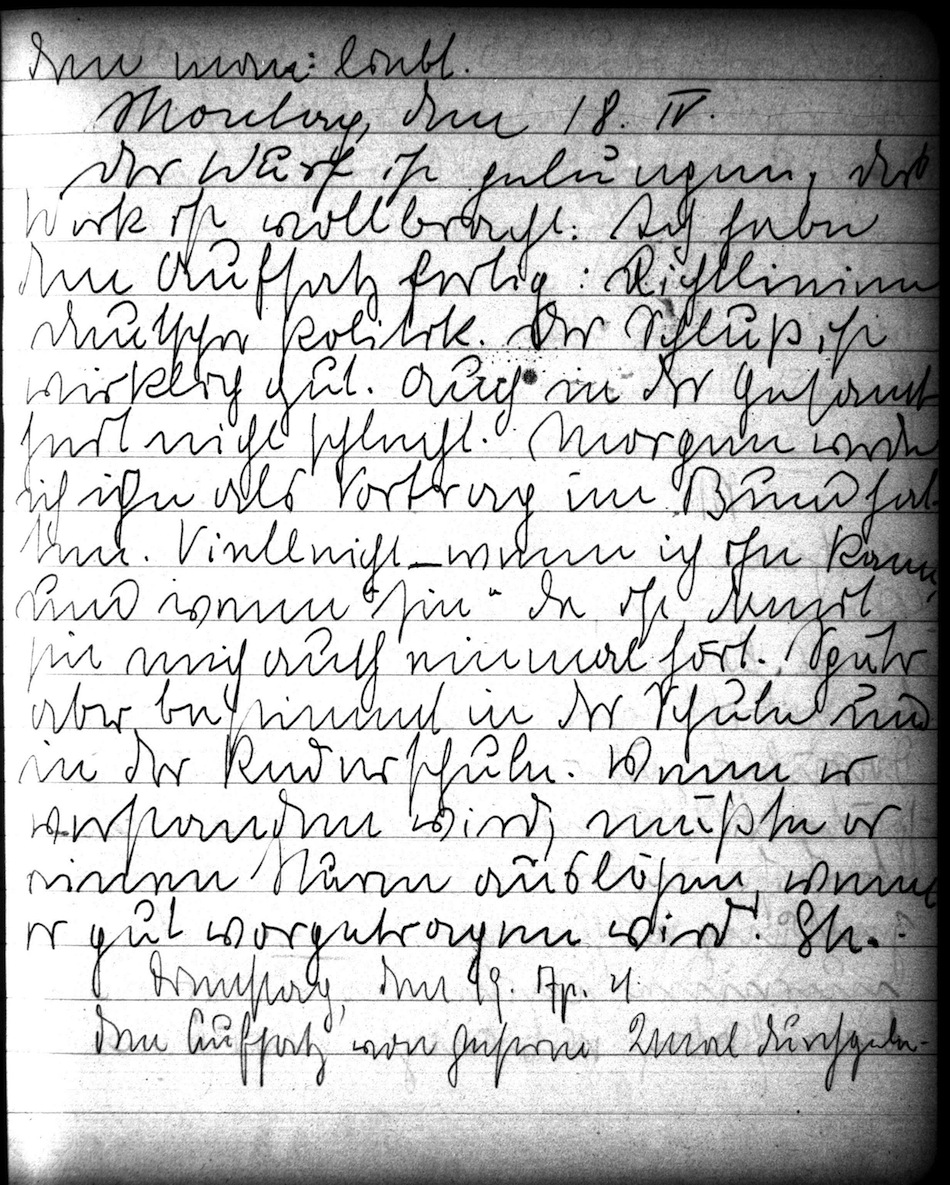 den man: liebt.
Montag, den 18. IV.
Der Wurf ist gelungen, das
Werk ist vollbracht: Ich habe
den Aufsatz fertig: Richtlinien
deutscher Politik. Der Schluß ist
wirklich gut. Auch in der Gesamt
heit nicht schlecht. Morgen werde
ich ihn als Vortrag im Bund hal-
ten. Vielleicht – wenn ich ihn kann,
und wenn "sie" da ist, damit
sie mich auch einmal hört. Später
aber bestimmt in der Schule und
in der Ruderschule. Wenn er
verstanden wird, müßte er
einen Sturm auslösen, wenn
er gut vorgetragen wird.
Dienstag, den 19. Ap. 21.
Den Aufsatz von gestern 2mal durchgele-